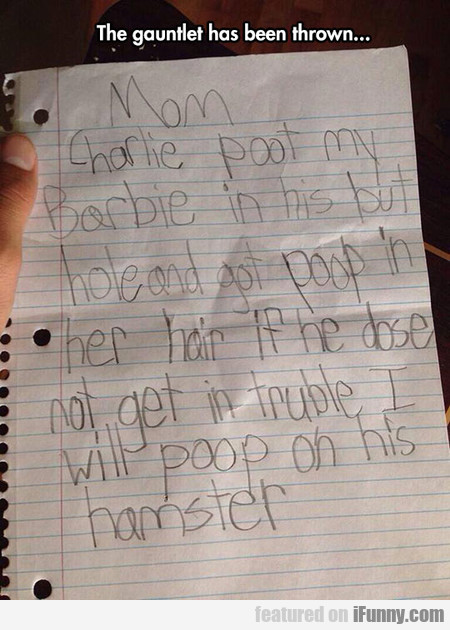 The gauntlet has been thrown...
Mom
Charlie poot my
Barbie in his but
hole and got poop in
her hair if he dose
not get in truble I
will poop on his
hamster
featured on iFunny.com